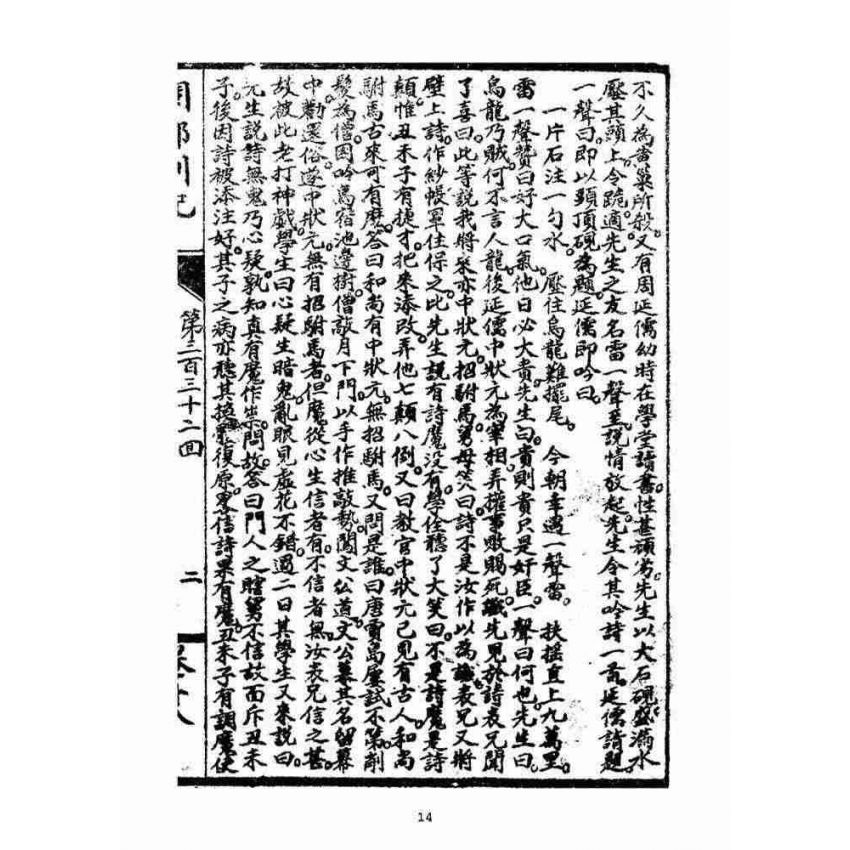 不久為畬巢所殺。又有周延儒幼時在學堂讀書。性甚頑劣。先生以大石硯盛滿水
壓其頭上。令跪。適先生之友名雷一聲至。說情放起。先生令其吟詩一首。延儒請題。
一聲曰。即以頭頂硯為題。延儒即吟曰。
一片石注一勺水。　壓住烏龍難擺尾　今朝幸遇一聲雷。　扶搖直上九萬里。
雷一聲贊曰。好大口氣。他日必大貴。先生曰。貴則貴。只是奸臣。一聲曰。何也。先生曰。
烏龍乃賊。何不言人龍。後延儒中狀元。為宰相。弄權事敗賜死。先見於詩。表兄聞
了喜曰。此等說我將來亦中狀元。招駙馬。舅母笑曰。詩不是汝作。以為。表兄又將
壁上詩。作紗帳罩住保之。此先生說有詩魔。沒有學生聽了大笑曰。不是詩魔。是詩
顛。惟丑未子有捷才。把來添改。弄他七顛八倒。又曰。教官中狀元。已見有古人。和尚
駙馬。古來可有麼。答曰。和尚有中狀元。無招駙馬。又問是誰。曰。唐賈島屢試不第。削
髮為僧。因吟鳥宿池邊樹。僧敲月下門。以手作推敲勢。闖文公道。文公慕其名。留幕
中。勸還俗。遂中狀元。無有招駙馬者。但魔從心生。信者有。不信者無。汝表兄信之甚。
故被此老打神戲。學生曰。心疑生暗鬼。亂眼見虛花。不錯。過二日。其學生又來說曰。
先生說詩無鬼。乃心疑。孰知真有魔作祟。問故。答曰。門人之瞎舅不信。故面斥丑未
子。後因詩被添注好。其子之病亦聽其復原。信詩果有魔。丑未子有調魔使
第三百三十二回
二
14